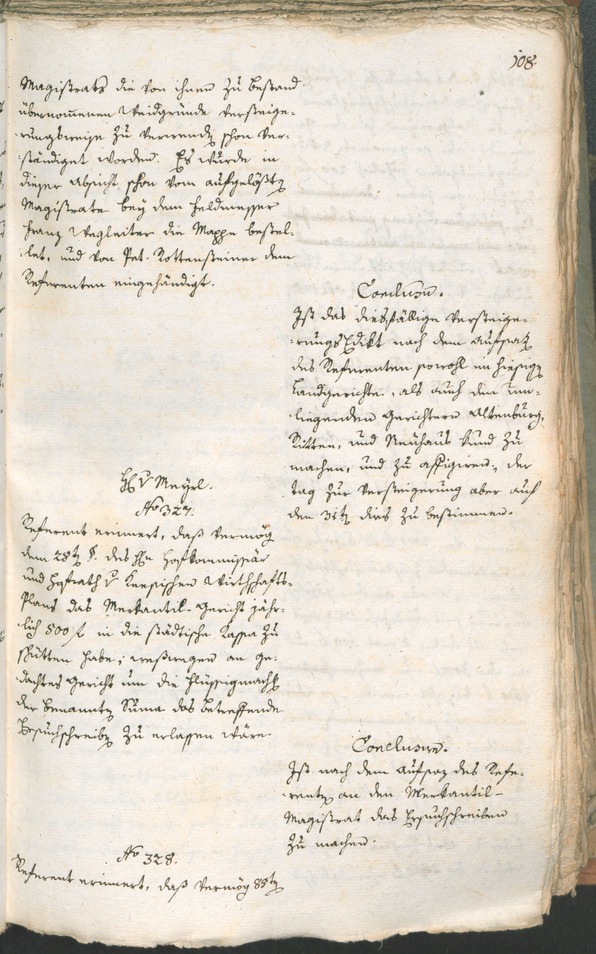 108.
Magistrats die von ihnen zu bestand
übernommenen Weidgründe versteige-
rungsweise zu verwenden schon ver-
ständiget worden. Es wurde in
dieser Absicht schon vom aufgelößten
Magistrate bey dem Feldmesser
Franz Wegleiter die Mappe bestel-
let, und von Pet. Rottensteiner dem
Referenten eingehändigt.
Conclusum.
Ist das diesfällige Versteige-
rungs Edikt nach dem Aufsatz
des Referenten sowohl im hiesigen
Landgerichte, als auch den um-
liegenden Gerichtern Altenburg,
Ritten, und Neuhaus kund zu
machen, und zu affigiren, der
tag zur Versteigerung aber auf
den 31ten dies zu bestimmen.
H v Meyrl.
No 327.
Referent erinnert, daß vermög
dem 28ten §. des Hn Hofkommissär
und Hofrath v. Keepischen Wirthschafts-
Plans das Merkantil-Gericht jähr-
lich 500 f in die städtische Kassa zu
schütten habe; weßwegen an ge-
dachtes Gericht um die Flüssigmachung
der benannten Suma das betreffende
Ersuchschreiben zu erlassen wäre.
Conclusum.
Ist nach dem Aufsaz des Refe-
renten an den Merkantil-
Magistrat das Ersuchschreiben
zu machen.
No 328.
Referent erinnert, daß vermög 85ten